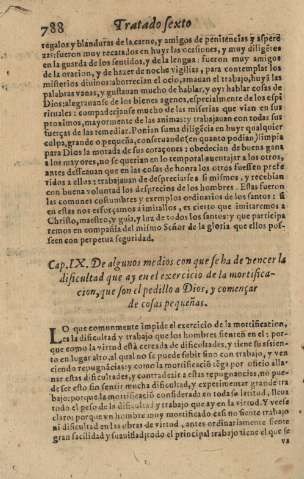 788 Tratado sexto
regalos y blanduras de la carne, y amigos de penitencias y aspere
zas: fueron muy recatados en huyr las ocasiones, y muy diligẽtes
en la guarda de los sentidos, y de la lengua: fueron muy amigos
de la oracion, y de hazer de noche vigilias, para contemplar los
misterios diuinos: aborrecian el ocio, amauan el trabajo, huyã las
palabras vanas, y gustauan mucho de hablar, y oyr hablar cosas de
Dios: alegrauanse de los bienes agenos, especialmente de los espi
rituales: compadecianse mucho de las miserias que vian en sus
proximos, mayormente de las animas: y trabajauan con todas sus
fuerças de las remediar. Ponian suma diligẽcia en huyr qualquier
culpa, grande o pequeña, conseruauan en quanto podian limpia
para Dios la morada de sus coraçones: obedecian de buena gana
a los mayores, no se querian en lo temporal auentajar a los otros,
antes desseauan que en las cosas de honra los otros fuessen prefe
ridos a ellos: trabajauan de despreciarse a si mismos, y recebian
con buena voluntad los desprecios de los hombres. Estas fueron
las comunes costumbres y exemplos ordinarios de los santos: si
en estas nos esforçamos a imitallos, es cierto que imitaremos a
Christo, maestro, y guia, y luz de todos los santos: y que participa
remos en compañia del mismo Señor de la gloria que ellos pos-
seen con perpetua seguridad.
Cap. IX. De algunos medios con que se ha de vencer la
dificultad que ay en el exercicio de la mortifica-
cion, que son el pedillo a Dios, y començar
de cosas pequeñas.
LO que comunmente impide el exercicio de la mortificacion,
es la dificultad y trabajo que los hombres sienten en el: por-
que como la virtud està cercada de dificultades, y tiene su assien-
to en lugar alto, al qual no se puede subir sino con trabajo, y ven
ciendo repugnãcias: y como la mortificaciõ tẽga por oficio alla-
nar estas dificultades, y contradezir a estas repugnancias, no pue-
de ser esto sin sentir mucha dificultad, y experimentar grande tra
bajo: porque la mortificaciõ considerada en toda su latitud, lleua
todo el peso de la dificultad y trabajo que ay en la virtud. Y veese
claro: porque vn hombre muy mortificado casi no siente trabajo
ni dificultad en las obras de virtud, antes ordinariamente siente
gran facilidad y suauidad: todo el principal trabajo tiene el que se
va